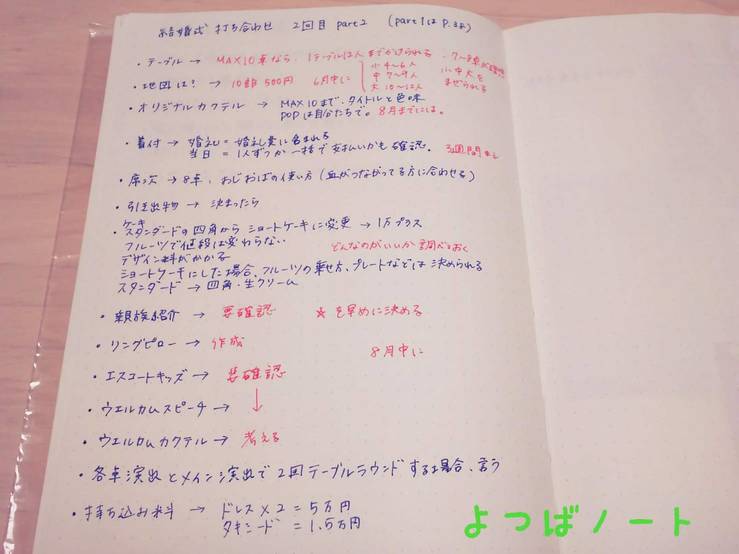 結婚式 打ち合わせ 2回目 part2 (part1は P.38)
・テーブル → MAX10卓なら、1テーブル12人までかけられる。7〜8卓が理想
小4〜6人
中7〜9人
大10〜12人
小中大を
まぜられる
・地図は? → 10部500円 6月中に
・オリジナルカクテル → MAX10まで、タイトルと色味
POPは自分たちで。8月までには。
・着付 → 婚礼 = 婚礼費に含まれる
当日 = 1人ずつか一括で支払いかも確認。3週間前
・席次 → 8卓、おじおばの使い方(血がつながってる方に合わせる)
・引き出物 → 決まったら
・ケーキ
スタンダードの四角から ショートケーキに変更 → 1万プラス
フルーツで値段は変わらない
どんなのがいいか調べておく
デザイン料がかかる
ショートケーキにした場合、フルーツの乗せ方、プレートなどは決められる
スタンダード → 四角・生クリーム
・親族紹介 → 要確認 ☆を早めに決める
・リングピロー → 作成
8月中に
・エスコートキッズ → 要確認
・ウエルカムスピーチ → ↓
・ウエルカムカクテル → 考える
・各卓演出とメイン演出で2回テーブルラウンドする場合、言う
・持ち込み料 → ドレス×2 = 5万円
タキシード = 1.5万円
よつばノート